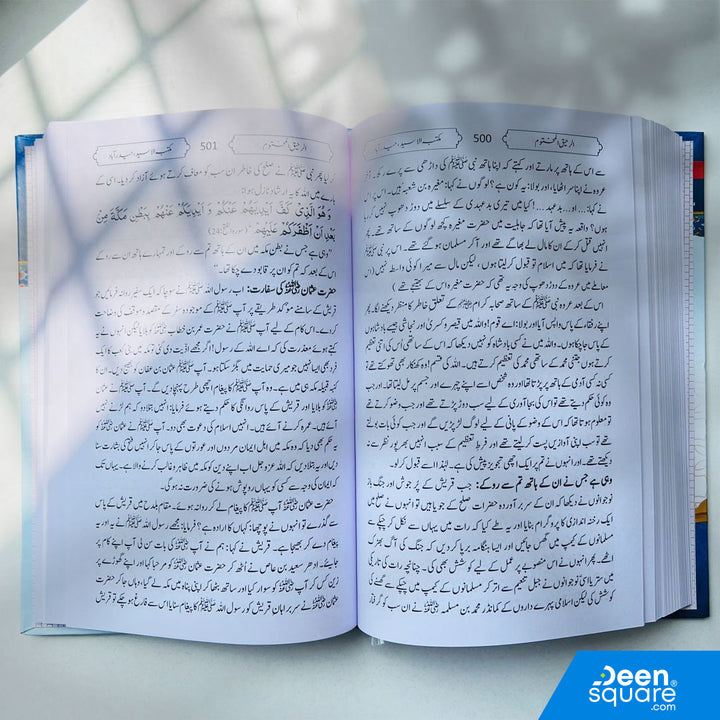 500
الرحیق المختوم
مکتبۃ الاسیہ، حیدرآباد
سے اس کے ہاتھ پر مارتے اور کہتے کہ اپنا ہاتھ نبی ﷺ کی داڑھی سے پرے رکھو۔ آخر
عروہ نے اپنا سر اٹھایا، اور بولا: یہ کون ہے؟ لوگوں نے کہا: مغیرہ بن شعبہ ہیں۔ اس پر اس
نے کہا: ...او... بدعہد...! کیا میں تیری بدعہدی کے سلسلے میں دوڑ دھوپ نہیں کر رہا
ہوں؟ واقعہ یہ پیش آیا تھا کہ جاہلیت میں حضرت مغیرہ کچھ لوگوں کے ساتھ تھے۔ پھر
انہیں قتل کر کے ان کا مال لے بھاگے تھے اور آ کر مسلمان ہو گئے تھے۔ اس پر نبی ﷺ
نے فرمایا تھا کہ میں اسلام تو قبول کر لیتا ہوں، لیکن مال سے میرا کوئی واسطہ نہیں (اس
معاملے میں عروہ کے دوڑ دھوپ کی وجہ یہ تھی کہ حضرت مغیرہ اس کے بھتیجے تھے)
اس کے بعد عروہ نبی ﷺ کے ساتھ صحابہ کرام کے تعلق خاطر کا منظر دیکھنے لگا۔ پھر
اپنے رفقاء کے پاس واپس آیا اور بولا: اے قوم! واللہ میں قیصر و کسریٰ اور نجاشی جیسے بادشاہوں
کے پاس جا چکا ہوں۔ واللہ میں نے کسی بادشاہ کو نہیں دیکھا کہ اس کے ساتھی اُس کی اتنی تعظیم
کرتے ہوں جتنی محمد کے ساتھی محمد کی تعظیم کرتے ہیں۔ اللہ کی قسم! وہ کھنکار بھی تھوکتے تھے تو
کسی نہ کسی آدمی کے ہاتھ پر پڑتا تھا اور وہ شخص اسے اپنے چہرے اور جسم پر مل لیتا تھا۔ اور جب
وہ کوئی حکم دیتے تھے تو اس کی بجا آوری کے لیے سب دوڑ پڑتے تھے اور جب وضو کرتے تھے
تو معلوم ہوتا تھا کہ اس کے وضو کے پانی کے لیے لوگ لڑ پڑیں گے اور جب کوئی بات بولتے
تھے تو سب اپنی آوازیں پست کر لیتے تھے اور فرط تعظیم کے سبب انہیں بھرپور نظر سے نہ
دیکھتے تھے۔ اور انہوں نے تم پر ایک اچھی تجویز پیش کی ہے۔ لہٰذا اسے قبول کر لو۔
وہی ہے جس نے ان کے ہاتھ تم سے روکے: جب قریش کے پرجوش اور جنگ باز
نوجوانوں نے دیکھا کہ ان کے سربرآوردہ حضرات صلح کے جویا ہیں تو انہوں نے صلح میں
ایک رخنہ اندازی کا پروگرام بنایا اور یہ طے کیا کہ رات میں یہاں سے نکل کر چپکے سے
مسلمانوں کے کیمپ میں گھس جائیں اور ایسا ہنگامہ برپا کر دیں کہ جنگ کی آگ بھڑک
اٹھے۔ پھر انہوں نے اس منصوبے پر عمل کے لیے کوشش بھی کی۔ چنانچہ رات کی تاریکی
میں ستر یا اسی نوجوانوں نے جبل تنعیم سے اتر کر مسلمانوں کے کیمپ میں چپکے سے گھسنے کی
کوشش کی لیکن اسلامی پہرے داروں کے کمانڈر محمد بن مسلمہ نے ان سب کو گرفتار
501
الرحیق المختوم
مکتبۃ الاسیہ، حیدرآباد
کر لیا، پھر نبی ﷺ نے صلح کی خاطر ان سب کو معاف کرتے ہوئے آزاد کر دیا۔ اسی کے
بارے میں اللہ کا یہ ارشاد نازل ہوا:
وَهُوَ الَّذِي كَفَّ أَيْدِيَهُمْ عَنكُمْ وَأَيْدِيَكُمْ عَنْهُم بِبَطْنِ مَكَّةَ مِن
بَعْدِ أَنْ أَظْفَرَكُمْ عَلَيْهِمْ (سورۃ الفتح: 24)
"وہی ہے جس نے بطن مکہ میں ان کے ہاتھ تم سے روکے اور تمہارے ہاتھ ان سے روکے
اس کے بعد کہ تم کو ان پر قابو دے چکا تھا۔"
حضرت عثمان کی سفارت: اب رسول اللہ ﷺ نے سوچا کہ ایک سفیر روانہ فرمائیں جو
قریش کے سامنے مؤکد طریقے پر آپ ﷺ کے موجودہ سفر کے مقصد و موقف کی وضاحت
کر دے۔ اس کام کے لیے آپ ﷺ نے حضرت عمر بن خطاب کو بلایا لیکن انہوں نے یہ
کہتے ہوئے معذرت کی کہ اے اللہ کے رسول! اگر مجھے اذیت دی گئی تو مکہ میں بنی کعب کا ایک
فرد بھی ایسا نہیں جو میری حمایت میں بگڑ سکتا ہو۔ آپ ﷺ عثمان بن عفان کو بھیج دیں۔ ان کا
کنبہ قبیلہ مکہ ہی میں ہے۔ وہ آپ ﷺ کا پیغام اچھی طرح پہنچا دیں گے۔ آپ ﷺ نے حضرت عثمان
کو بلایا اور قریش کے پاس روانگی کا حکم دیتے ہوئے فرمایا: انہیں بتلا دو کہ ہم لڑنے نہیں
آئے ہیں۔ عمرہ کرنے آئے ہیں۔ انہیں اسلام کی دعوت بھی دو۔ آپ ﷺ نے حضرت عثمان کو
یہ حکم بھی دیا کہ وہ مکہ میں اہل ایمان مردوں اور عورتوں کے پاس جا کر انہیں فتح کی بشارت سنا
دیں اور یہ بتلا دیں کہ اللہ عزوجل اب اپنے دین کو مکہ میں ظاہر و غالب کرنے والا ہے۔ یہاں تک
کہ ایمان کی وجہ سے کسی کو یہاں روپوش ہونے کی ضرورت نہ ہو گی۔
حضرت عثمان آپ ﷺ کا پیغام لے کر روانہ ہوئے۔ مقام بلدح میں قریش کے پاس
سے گذرے تو انہوں نے پوچھا: کہاں کا ارادہ ہے؟ فرمایا: مجھے رسول اللہ ﷺ نے یہ اور یہ
پیغام دے کر بھیجا ہے۔ قریش نے کہا: ہم نے آپ ﷺ کی بات سن لی آپ اپنے کام پر
جائیے۔ ادھر سعید بن عاص نے اٹھ کر حضرت عثمان کو مرحبا کہا اور اپنے گھوڑے پر
زین کس کر آپ کو سوار کیا اور ساتھ بٹھا کر اپنی پناہ میں مکہ لے گیا، وہاں جا کر حضرت
عثمان نے سربراہان قریش کو رسول اللہ ﷺ کا پیغام سنایا اس سے فارغ ہو چکے تو قریش
Deen
square®
.com